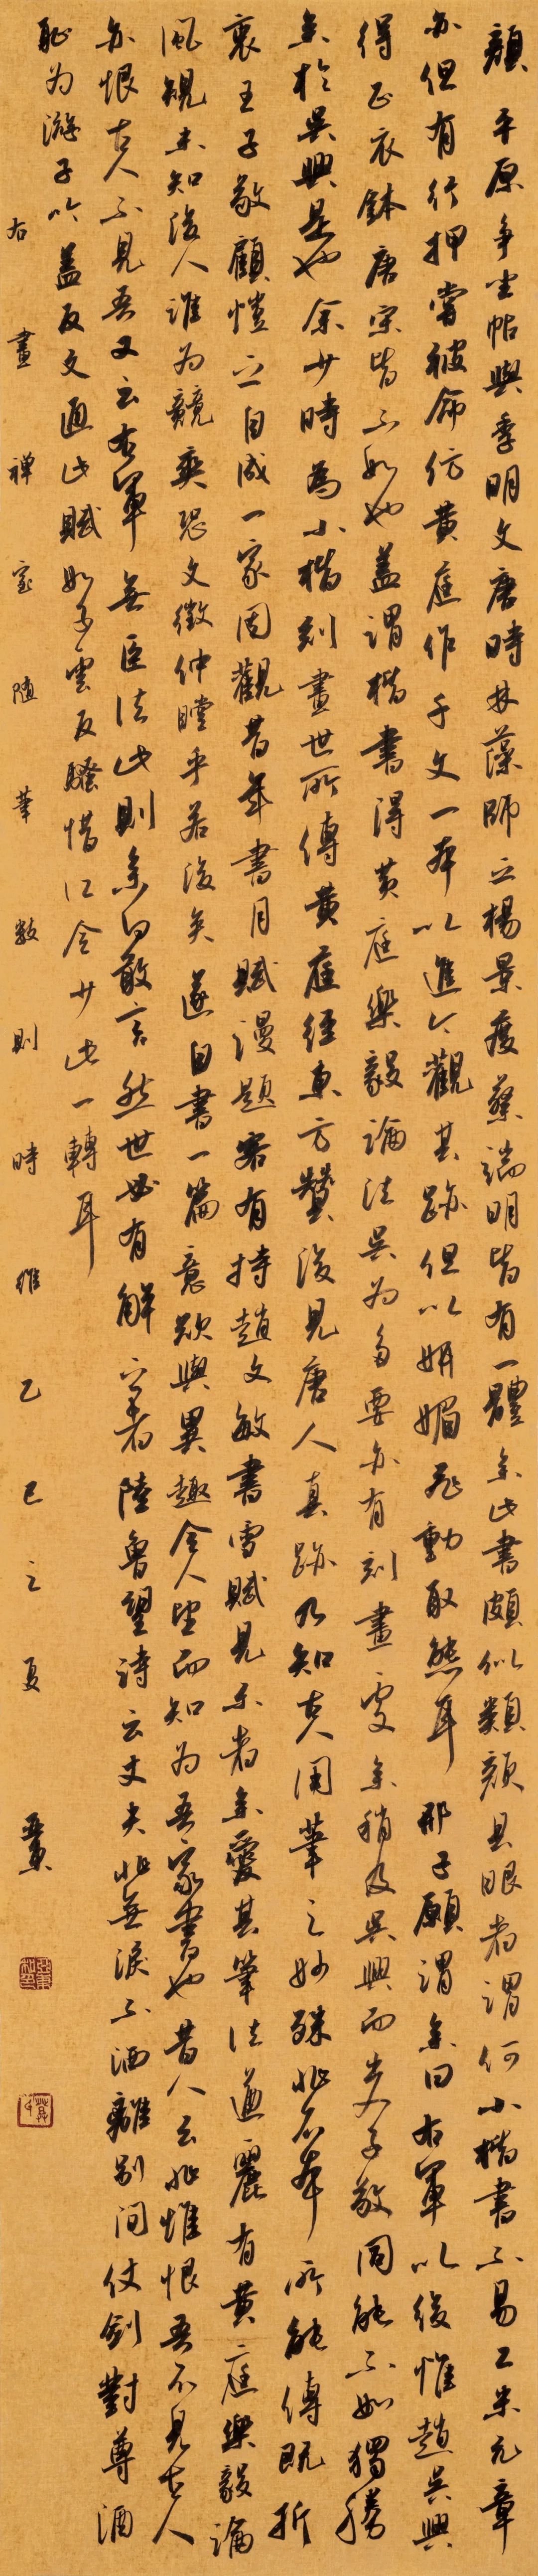 顏平原爭坐帖與季明文唐時林藻師之楊景度蔡端明皆有一體余此書頗似類顏具眼者謂何小楷書不易工米元章
亦但有行押嘗被命仿黃庭作千文一本以進今觀其跡但以妍媚飛動取態耳邢子愿謂余曰右軍以後惟趙吳興
得正衣鉢唐宋皆不如也蓋謂楷書得黃庭樂毅論法吳為多要亦有刻畫處余稍及吳興而出入子敬同能不如獨勝
余於吳興是也余少時為小楷刻畫世所傳黃庭經東方贊後見唐人真跡乃知古人用筆之妙殊非石本所能傳既折
衷王子敬顧愷之自成一家因觀昔年書月賦漫題客有持趙文敏書雪賦見示者余愛其筆法遒麗有黃庭樂毅論
風規未知後人誰為競爽恐文徵仲瞠乎若後矣遂自書一篇意欲與異趣令人望而知為吾家書也昔人云非惟恨吾不見古人
亦恨古人不見吾又云右軍無臣法此則余何敢言然世必有解之者陸魯望詩云丈夫非無淚不洒離別間仗劍對尊酒
恥為游子吟蓋反文通此賦如子雲反騷惜江令少此一轉耳
右畫禪室隨筆數則時維乙巳之夏